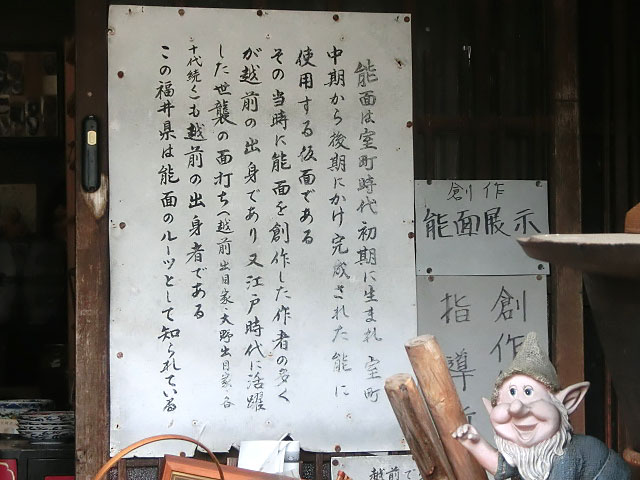 能面は室町時代初期に生まれ室町
中期から後期にかけ完成された能に
使用する仮面である
その当時に能面を創作した作者の多く
が越前の出身であり又江戸時代に活躍
した世襲の面打ち(越前出目家・大野出目家各
十代続く)も越前の出身者である
この福井県は能面のルーツとして知られている
創作
能面展示
創作
指導
越前で